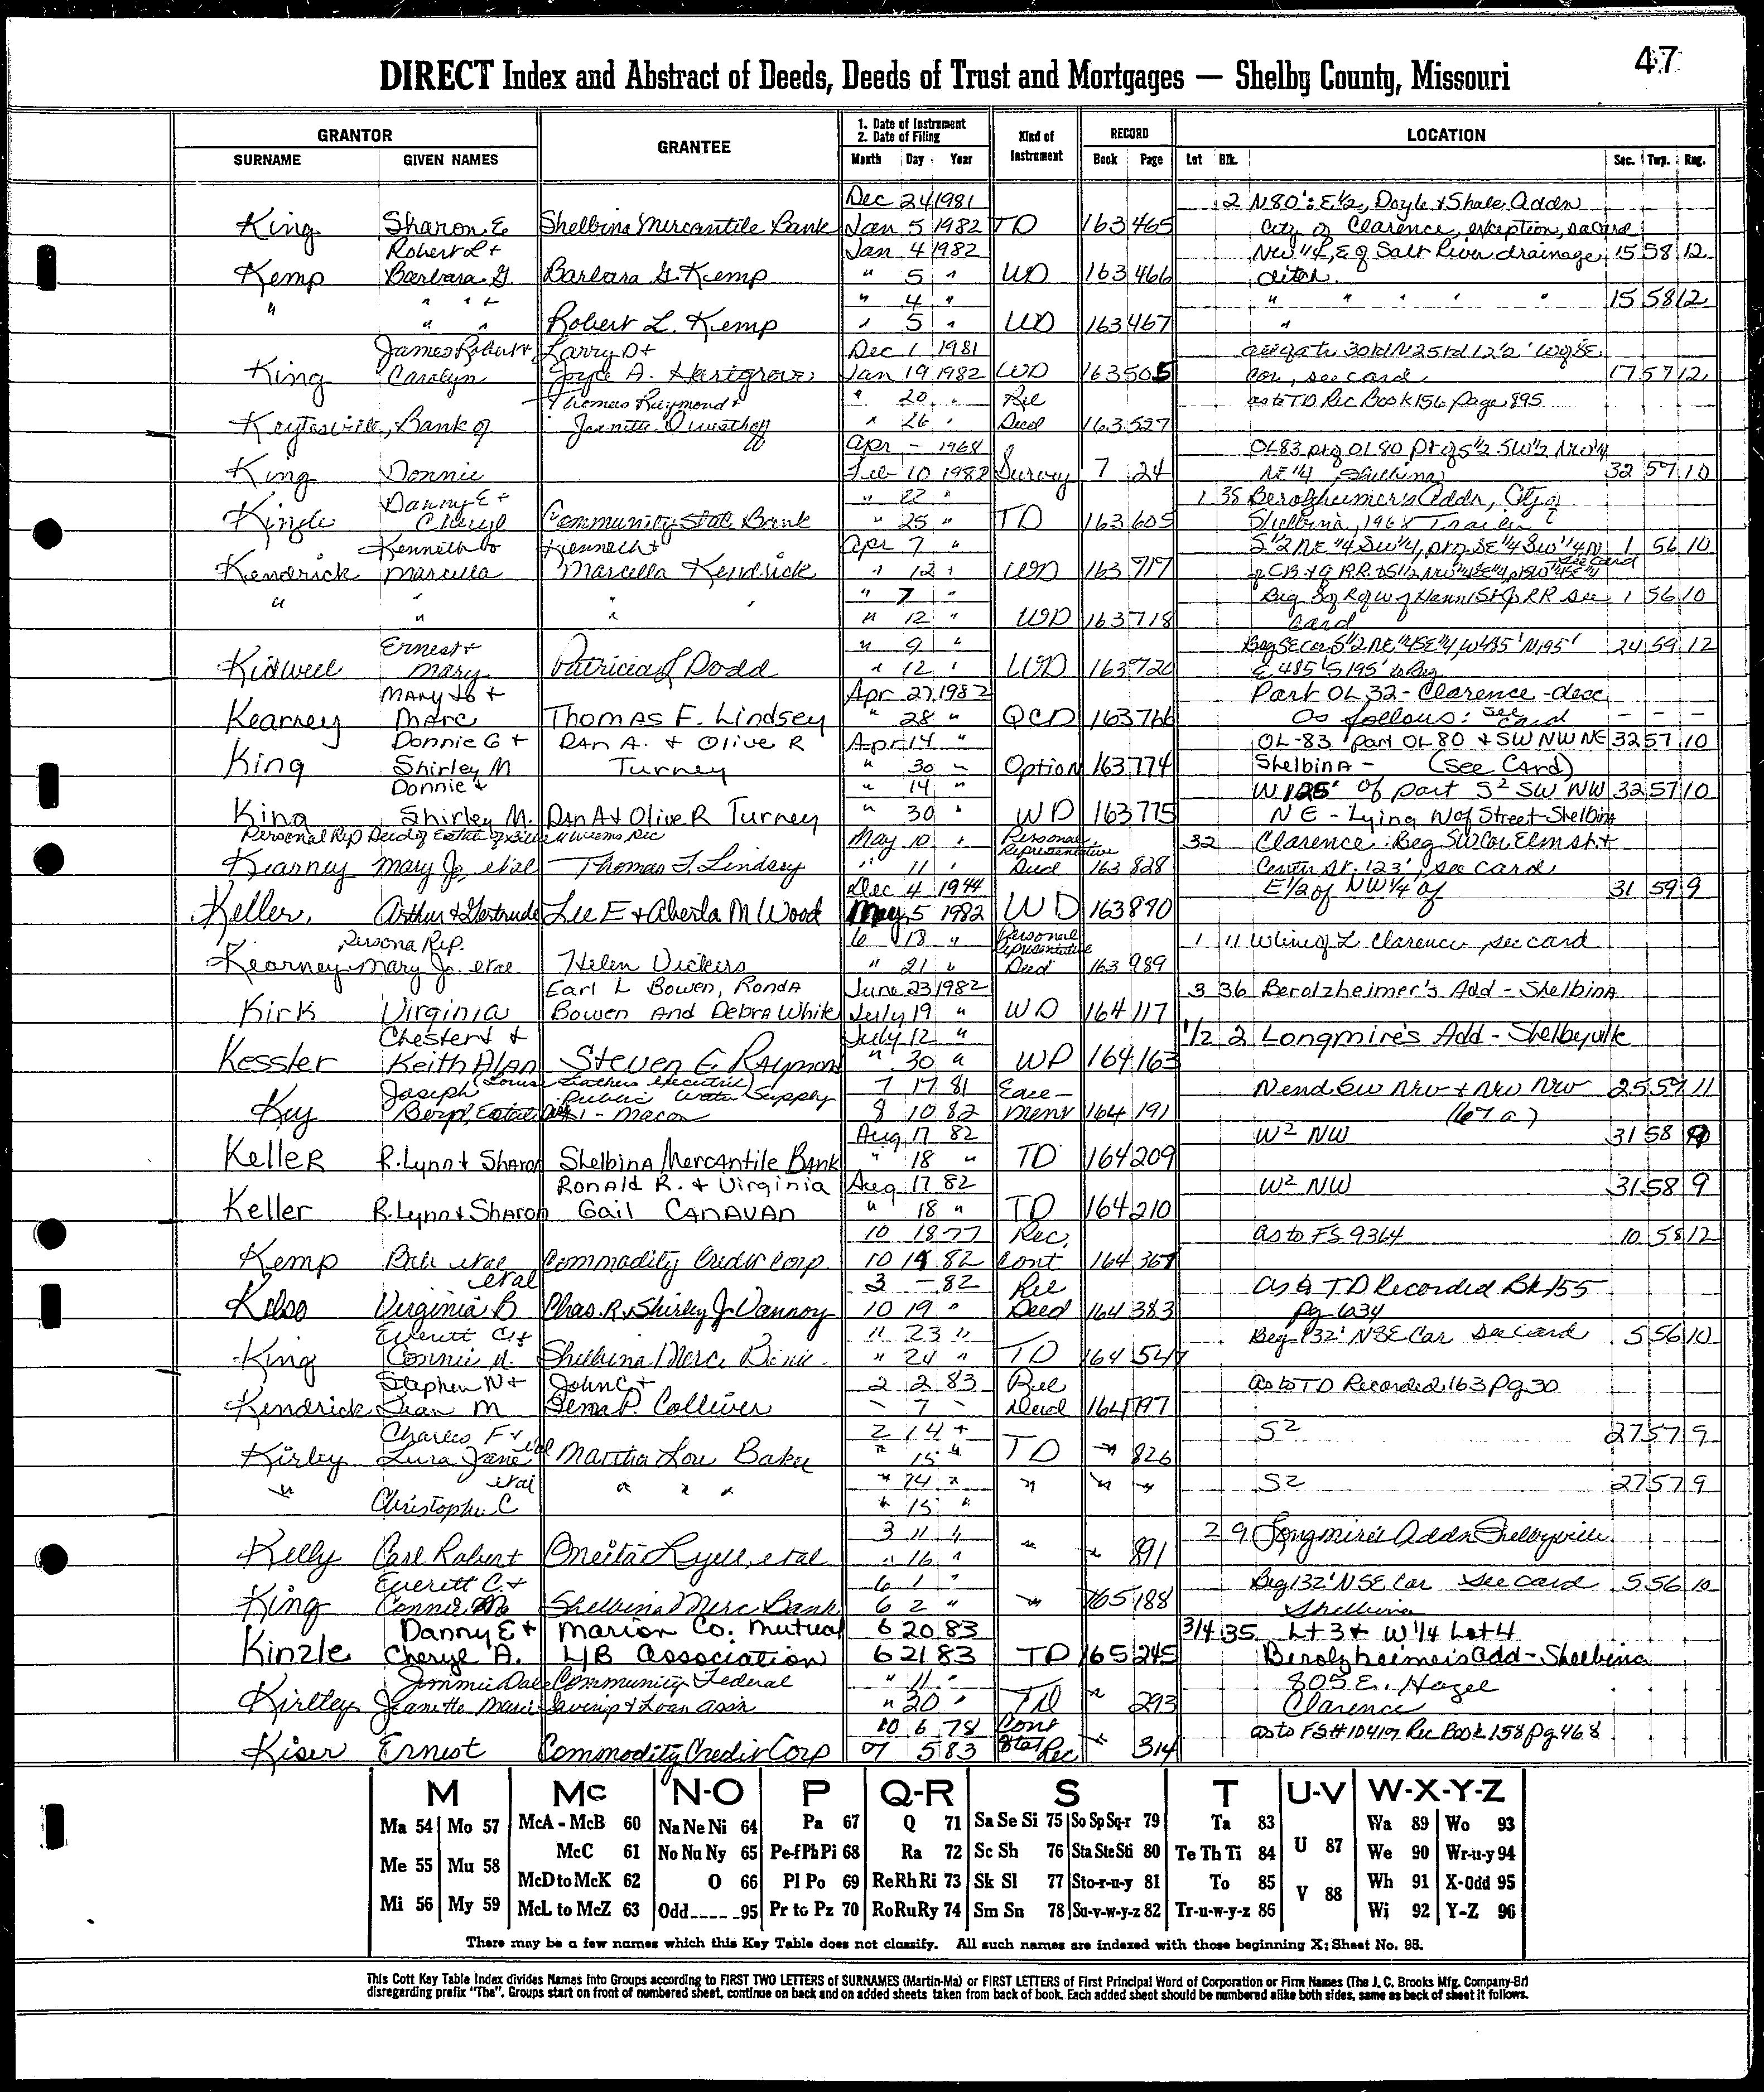 47
DIRECT Index and Abstract of Deeds, Deeds of Trust and Mortgages — Shelby County, Missouri
GRANTOR GRANTEE 1. Date of Instrument 2. Date of Filing Kind of Instrument RECORD LOCATION
SURNAME GIVEN NAMES Month Day Year Book Page Lot Blk. Sec. Twp. Rng.
Dec 24 1981 2 N80': E½, Doyle & Shale Addn
King Sharon E Shelbina Mercantile Bank Jan 5 1982 TD 163 465 City of Clarence, exception, see card
Robert L + Jan 4 1982 NW¼, E of Salt River drainage 15 58 12
Kemp Barbara G. Barbara G. Kemp " 5 " WD 163 466 ditch.
" " " + " 4 " " " " " " 15 58 12
" " Robert L. Kemp " 5 " WD 163 467 "
James Robert + Larry D + Dec 1 1981
King Carolyn Joyce A. Hartgrove Jan 19 1982 WD 163 505 Cor, see card 17 57 12
Thomas Raymond + " 20 " Rel as to TD Rec Book 156 Page 895
Keytesville, Bank of " 26 " Deed 163 527
Apr – 1968 OL83 pt of OL80 Pt of S½ SW½ NW¼
King Donnie Feb 10 1982 Survey 7 24 NE¼ Shelbina 32 57 10
Danny E + " 22 " 1 35 Berolzheimer's Addn, City of
Kinzle Cheryl Community State Bank " 25 " TD 163 605 Shelbina, 1968 Trailer
Kenneth + Kenneth + Apr 7 " S½ NE¼ SW¼, pt of SE¼ SW¼ N 1 56 10
Kendrick Marcella Marcella Kendrick " 12 " WD 163 717 see card
" " " " " 7 " Beg S of R of W of Hann St Jo RR see 1 56 10
" " " 12 " WD 163 718 Card
Ernest + " 9 " Beg SE Cor S½ NE¼ SE¼, W485' N195' 24 59 12
Kidwell Mary Patricia L Dodd " 12 " WD 163 720 E 485' S195' to Beg
Mary Jo + Apr 27 1982 Part OL 32 - Clarence - desc
Kearney Marc Thomas F. Lindsey " 28 " QCD 163 766 as follows: see card – – –
Donnie G + Dan A. + Olive R Apr 14 " OL-83 part OL 80 + SW NW NE 32 57 10
King Shirley M Turney " 30 " Option 163 774 Shelbina - (see Card)
Donnie + " 14 " W 125' of part S² SW NW 32 57 10
King Shirley M. Dan A + Olive R Turney " 30 " WD 163 775 NE - Lying N of Street - Shelbina
Personal Rep Deed of Estate of May 10 " Personal Representative 32 Clarence: Beg SW Cor Elm St. +
Kearney Mary Jo, etal Thomas F. Lindsey " 11 " Deed 163 828 Center St. 123', see card
Dec 4 1944 E½ of NW¼ of 31 59 9
Keller, Arthur + Gertrude Lee E + Alberta M Wood May 5 1982 WD 163 890
Persona Rep. 6 18 " Personal Representative 1 11 W line of L Clarence see card
Kearney Mary Jo. etal Helen Vickers " 21 " Deed 163 989
Earl L Bowen, Ronda June 23 1982 3 36 Berolzheimer's Add - Shelbina
Kirk Virginia Bowen and Debra White July 19 " WD 164 117
Chester + July 12 " 1/2 2 Longmire's Add - Shelbyville
Kessler Keith Alan Steven E. Raymond " 30 " WD 164 163
Joseph (Louise Leathers executrix) Public Water Supply 7 17 81 Ease- N end SW NW + NW NW 25 57 11
Key Benj, Estate Dist #1 - Macon 8 10 82 ment 164 191 (67 a)
Aug 17 82 W² NW 31 58 9
Keller R. Lynn + Sharon Shelbina Mercantile Bank " 18 " TD 164 209
Ronald R. + Virginia Aug 17 82 W² NW 31 58 9
Keller R. Lynn + Sharon Gail Canavan " 18 " TD 164 210
10 18 77 Rec, as to FS 9364 10 58 12
Kemp etal Commodity Credit Corp 10 19 82 Cont 164 367
etal 3 – 82 Rel as to TD Recorded Bk 155
Kelso Virginia B Chas. R + Shirley J Vannoy 10 19 " Deed 164 383 pg 634
Everett C + 11 23 " Beg 132' N SE Cor see card 5 56 10
King Connie M. Shelbina Merc Bank " 24 " TD 164 547
Stephen N + John C + 2 2 83 Rel as to TD Recorded 163 Pg 30
Kendrick Jean M Gema P. Colliver " 7 " Deed 164 797
Charles F + 2 14 " S² 27 57 9
Kirby Lura Jane etal Martha Lou Baker " 15 " TD " 826
" etal " " " " 14 " " " " S² 27 57 9
Christopher C " 15 "
3 11 " 2 9 Longmire's Addn Shelbyville
Kelly Carl Robert Oneita Lyell, etal " 16 " " " 891
Everett C. + 6 1 " Beg 132' N SE Cor see card 5 56 10
King Connie M Shelbina Merc Bank 6 2 " " 165 188 Shelbina
Danny E + Marion Co. Mutual 6 20 83 3/4 35 Lt 3 + W 1/4 Lot 4
Kinzle Cheryl A. L/B Association 6 21 83 TD 165 245 Berolzheimers Add - Shelbina
Jimmie Dale Community Federal " 11 " 805 E. Hazel
Kirtley Jeanette Marie Savings + Loan assn " 20 " TD " 293 Clarence
10 6 78 Cont as to FS# 10419 Rec Book 158 pg 468
Kiser Ernest Commodity Credit Corp 07 5 83 Stat Rec " 314
M Mc N-O P Q-R S T U-V W-X-Y-Z
Ma 54 Mo 57 McA - McB 60 Na Ne Ni 64 Pa 67 Q 71 Sa Se Si 75 So Sp Sq-r 79 Ta 83 Wa 89 Wo 93
McC 61 No Nu Ny 65 Pe-f Ph Pi 68 Ra 72 Sc Sh 76 Sta Ste Sti 80 Te Th Ti 84 U 87 We 90 Wr-u-y 94
Me 55 Mu 58 McD to McK 62 O 66 Pl Po 69 Re Rh Ri 73 Sk Sl 77 Sto-r-u-y 81 To 85 V 88 Wh 91 X-Odd 95
Mi 56 My 59 McL to McZ 63 Odd-----95 Pr to Pz 70 Ro Ru Ry 74 Sm Sn 78 Su-v-w-y-z 82 Tr-u-w-y-z 86 Wi 92 Y-Z 96
There may be a few names which this Key Table does not classify. All such names are indexed with those beginning X; Sheet No. 95.
This Cott Key Table Index divides Names into Groups according to FIRST TWO LETTERS of SURNAMES (Martin-Ma) or FIRST LETTERS of First Principal Word of Corporation or Firm Names (The J. C. Brooks Mfg. Company-Br)
disregarding prefix "The". Groups start on front of numbered sheet, continue on back and on added sheets taken from back of book. Each added sheet should be numbered alike both sides, same as back of sheet it follows.